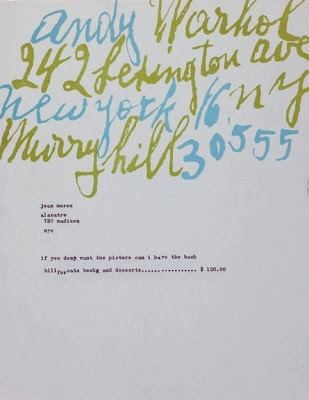 andy Warhol
242 Lexington ave
new york 16, ny
Murry hill 30555
jean morse
alacatre
780 madison
nyc
if you dony want the picture can i have the back
bill for cats books and desserts................ $ 120.00